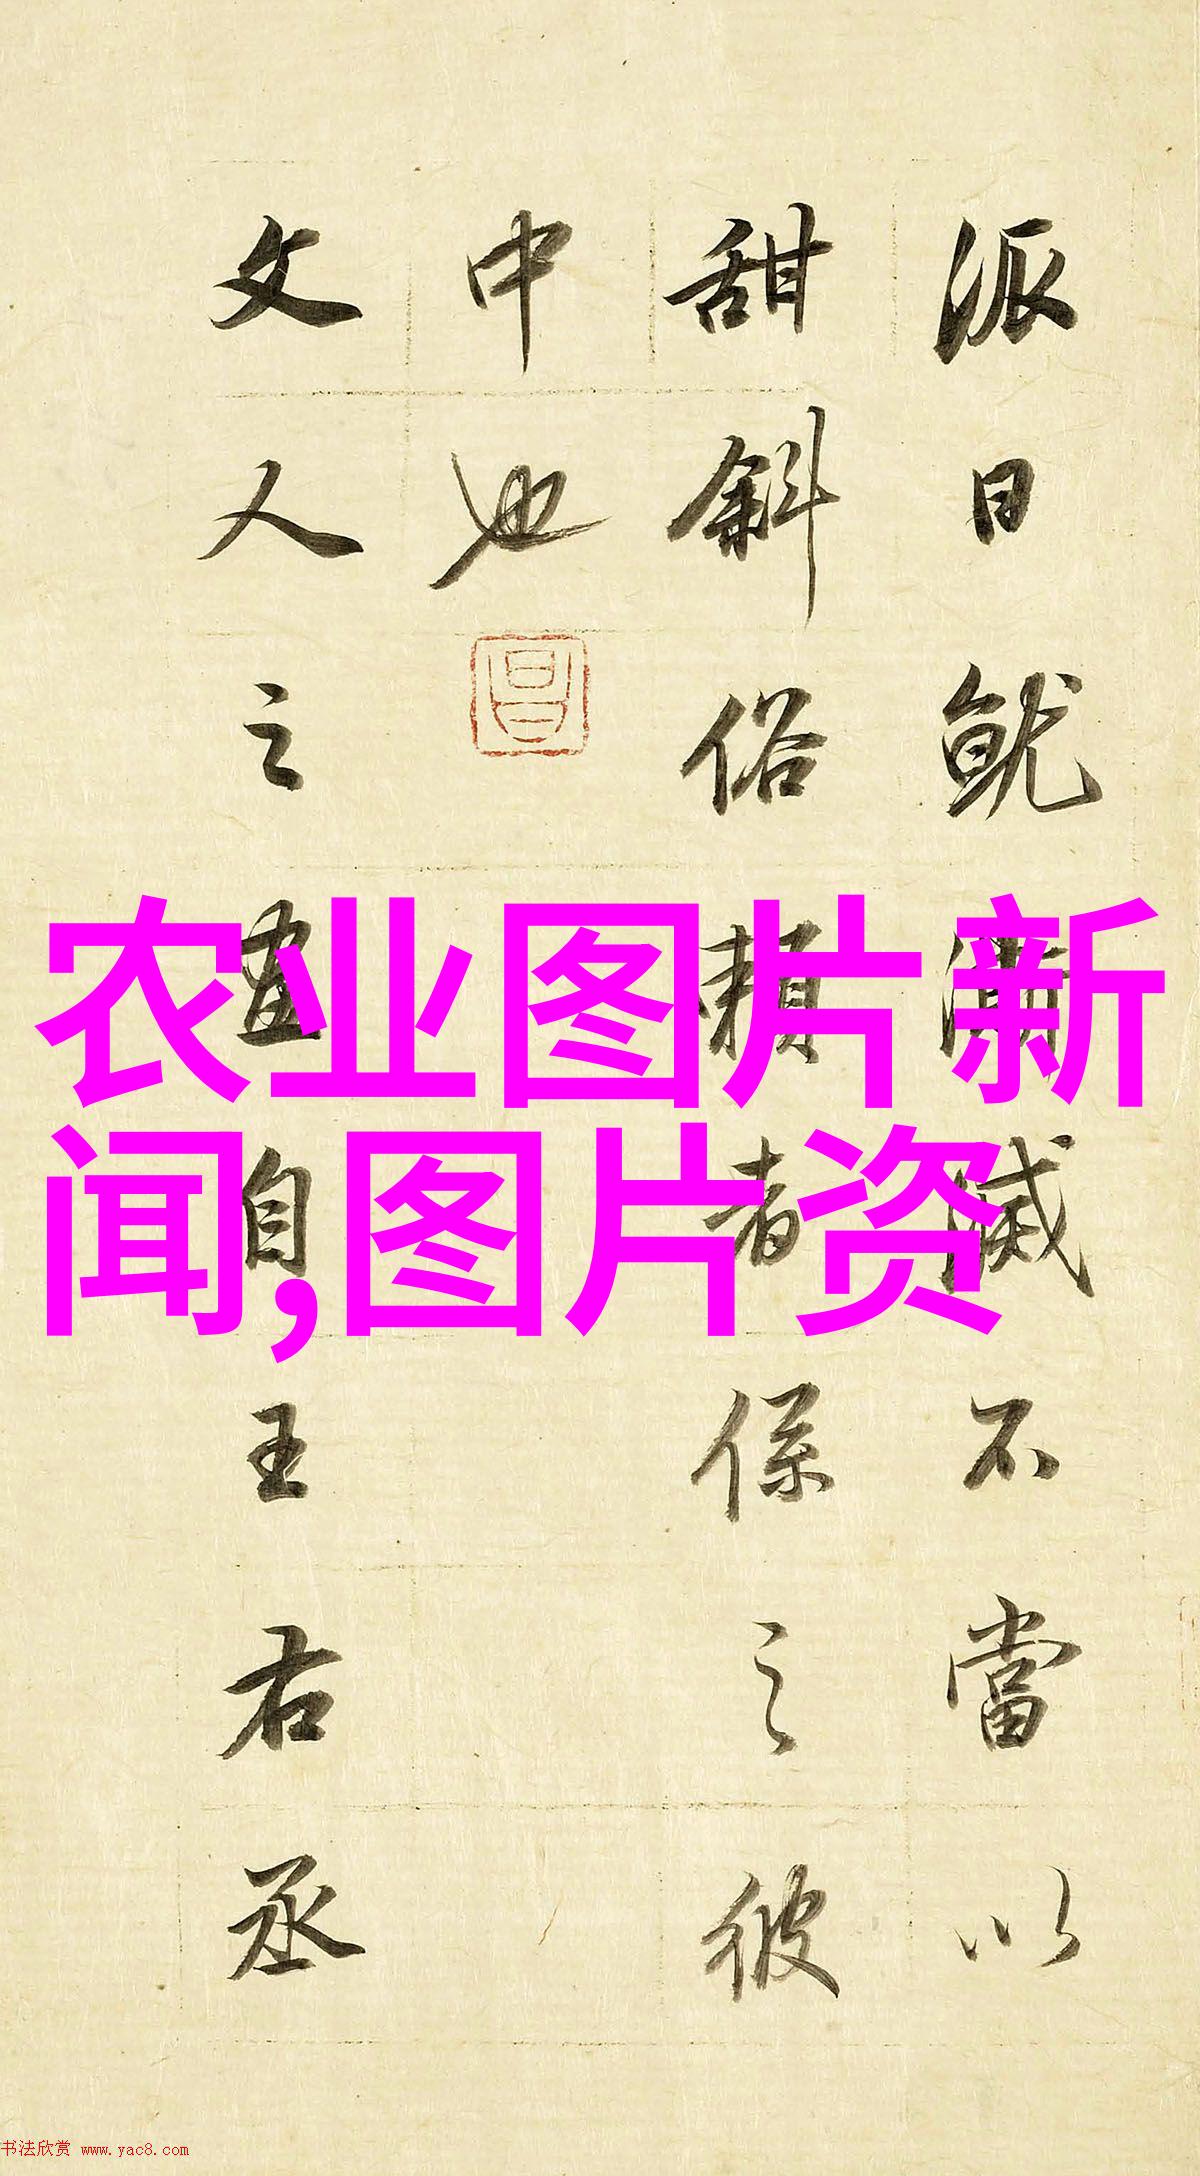 派日就澌滅不當以
甜斜俗賴者係之彼
中也
昌
文人之畫自王右丞
农业图片新
闻,图片资
书法欣赏 www.yac8.com